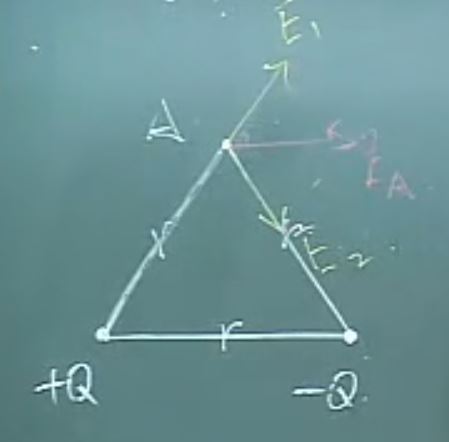 E₁
A
E_A
r
r
E₂
r
+Q
-Q